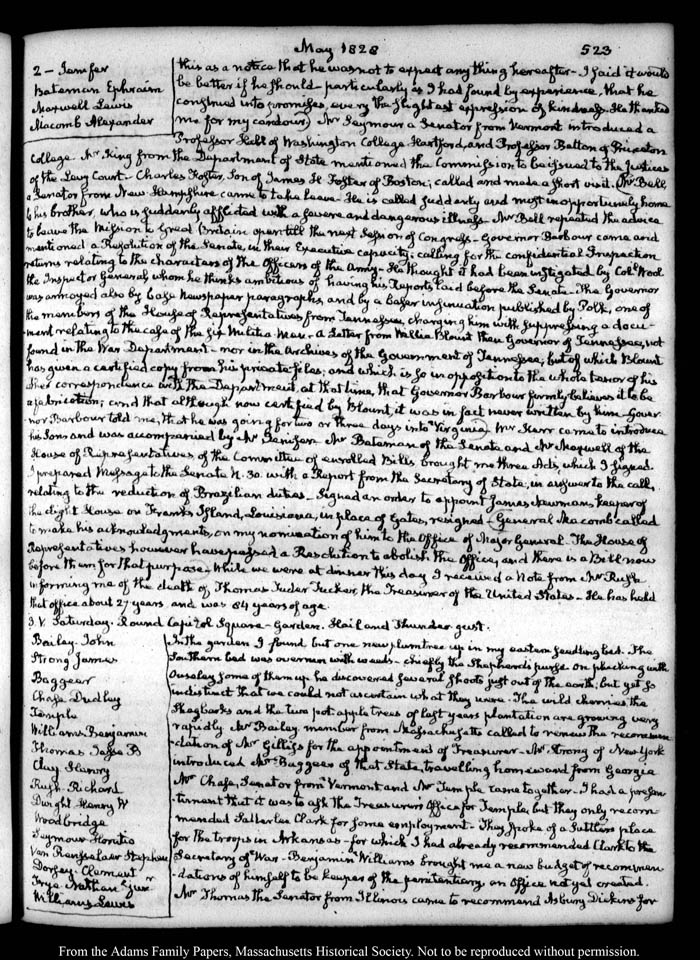 May 1828 523
2 - Jenifer
Bateman Ephraim
Maxwell Lewis
Macomb Alexander
this as a notice that he was not to expect any thing hereafter - I said it would
be better if he should particularly as I had found by experience, that he
construed into promises, every the slightest expression of kindness. He thanked
me for my candour) Mr Seymour a Senator from Vermont introduced a
Professor Holl of Washington College Hartford, and Professor Patton of Princeton
College. Mr King from the Department of State mentioned the Commission to be issued to the Justices
of the Levy Court - Charles Foster, Son of James H Foster of Boston, called and made a short visit. Mr Bell
a Senator from New Hampshire came to take leave - He is called suddenly and most inopportunely home
to his brother, who is suddenly afflicted with a severe and dangerous illness. Mr Bell repeated the advice
to leave the Mission to Great Britain open till the next Session of Congress - Governor Barbour came and
mentioned a Resolution of the Senate, in their Executive capacity, calling for the confidential Inspection
returns relating to the characters of the Officers of the Army - He thought it had been instigated by Col. Wool
the Inspector General, whom he thinks ambitious of having his Reports laid before the Senate - The Governor
was annoyed also by base Newspaper paragraphs, and by a baser insinuation published by Polk, one of
the members of the House of Representatives from Tennessee, charging him with suppressing a docu-
-ment relating to the case of the six Militia Men - A Letter from Willie Blount then Governor of Tennessee, not
found in the War Department - nor in the Archives of the Government of Tennessee, but of which Blount
has given a certified copy from his private files, and which is so in opposition to the whole tenor of his
other correspondence with the Department at that time, that Governor Barbour firmly believes it to be
a fabrication; and that although now certified by Blount, it was in fact never written by him - Gover-
-nor Barbour told me, that he was going for two or three days into Virginia. Mr Kerr came to introduce
his Sons and was accompanied by Mr Jenifer. Mr Bateman of the Senate and Mr Maxwell of the
House of Representatives of the Committee of enrolled Bills brought me three Acts, which I signed.
I prepared Message to the Senate N. 30. with a Report from the Secretary of State, in answer to the call,
relating to the reduction of Brazilian duties - Signed an order to appoint James Newman, keeper of
the Light House on Franks Island, Louisiana, in place of Gates, resigned - General Macomb called
to make his acknowledgments, on my nomination of him to the Office of Major General - The House of
Representatives however have passed a Resolution to abolish the Office, and there is a Bill now
before them for that purpose. While we were at dinner this day I received a Note from Mr Rush
informing me of the death of Thomas Tudor Tucker, the Treasurer of the United States - He has held
that office about 27 years and was 84 years of age.
3. V. Saturday. Round Capitol Square - Garden. Hail and Thunder gust.
Bailey. John
Strong James
Baggear
Chase Dudley
Temple
Williams Benjamin
Thomas Jesse B
Clay Henry
Rush Richard
Dwight Henry W
Woodbridge
Seymour Horatio
Van Rensselaer Stephen
Dorsey Clement
Frye Nathan Junr
Williams Lewis
In the garden I found but one new plumtree up in my eastern seedling bed. The
Southern bed was overrun with weeds - chiefly the Shepherd's purse on plucking with
Ouseley some of them up he discovered several Shoots just out of the earth; but yet so
indistinct that we could not ascertain what they were. The wild cherries the
Shagbarks and the two pot apple trees of last years plantation are growing very
rapidly Mr Bailey member from Massachusetts called to renew the recommen
-dation of Mr Gilliss for the appointment of Treasurer - Mr. Strong of New York
introduced Mr Baggear of that State, travelling homeward from Georgia
Mr Chase, Senator from Vermont and Mr Temple came together. I had a presen-
timent that it was to ask the Treasurer's Office for Temple but they only recom-
mended Satterlee Clark for some employment - They spoke of a Suttler's place
for the troops in Arkansas - for which I had already recommended Clark to the
Secretary of War - Benjamin Williams brought me a new budget of recommen
-dations of himself to be keeper of the penitentiary, an Office not yet created.
Mr Thomas the Senator from Illinois came to recommend Asbury Dickins for
From the Adams Family Papers, Massachusetts Historical Society. Not to be reproduced without permission.